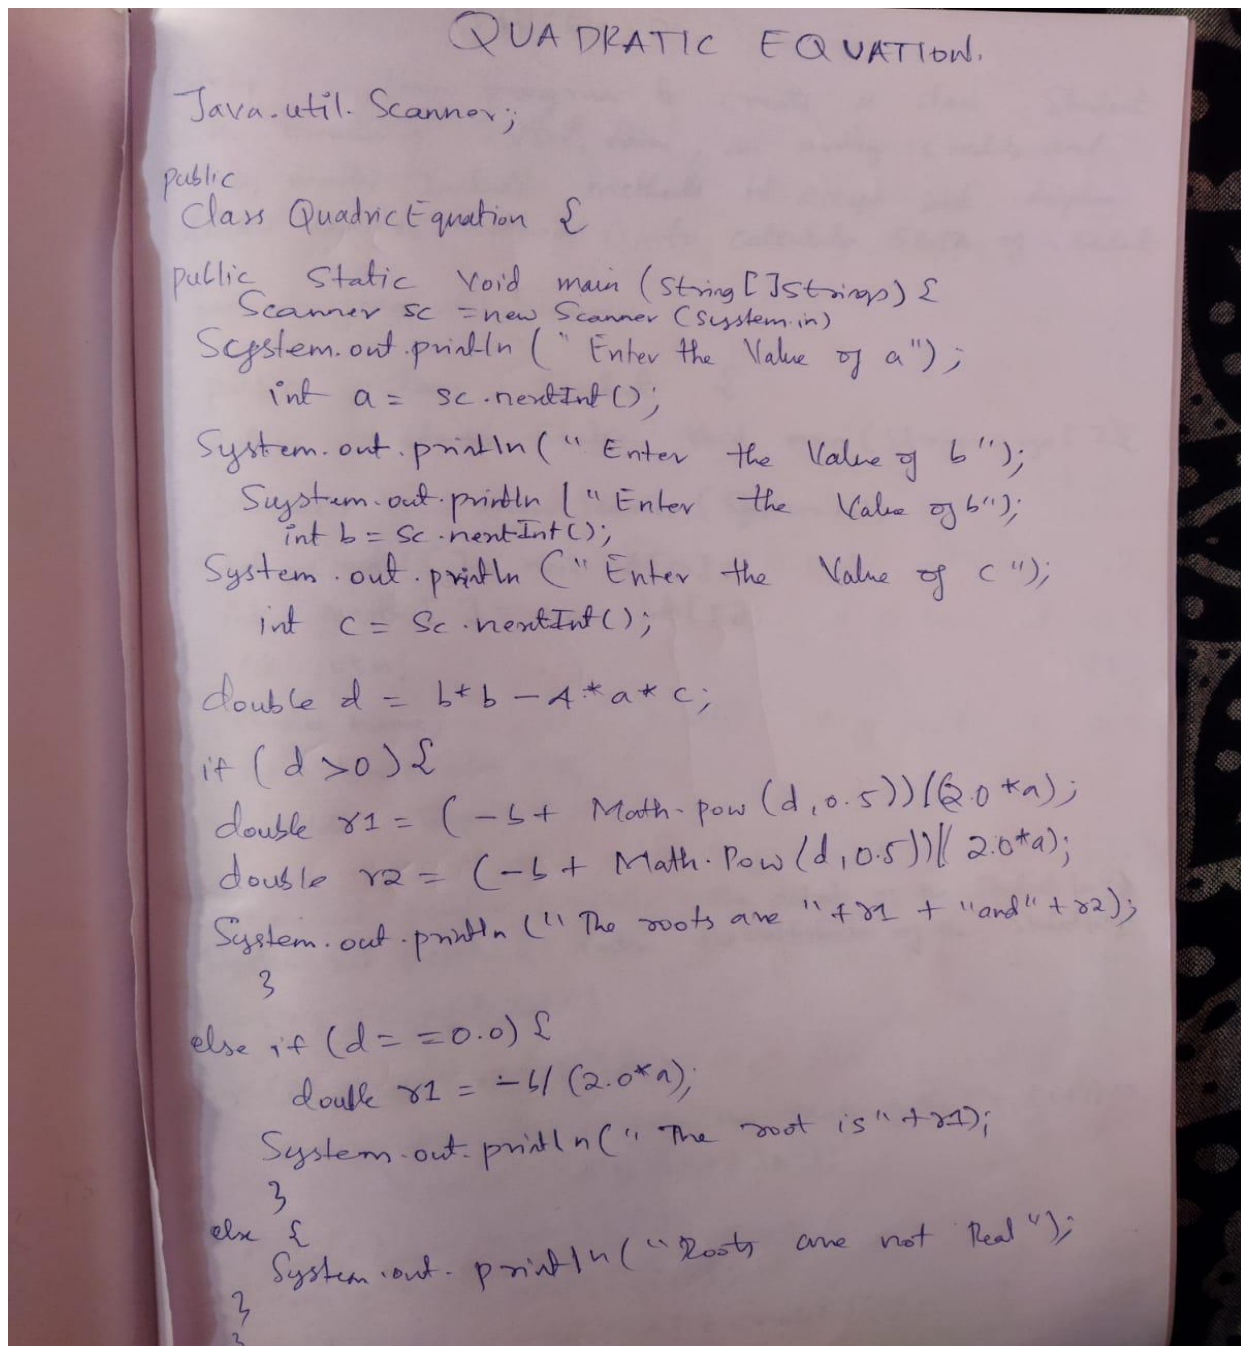 QUADRATIC EQUATION.
Java.util.Scanner;
public
Class QuadricEquation {
public Static Void main (String[]Strings) {
Scanner sc = new Scanner (System.in)
System.out.println (" Enter the Value of a");
int a = sc.nextInt();
System.out.println (" Enter the Value of b");
System.out.println (" Enter the Value of b");
int b = Sc.nextInt();
System.out.println (" Enter the Value of c");
int c = Sc.nextInt();
double d = b*b - 4*a*c;
if (d >0) {
double r1 = (-b+ Math.pow (d,0.5))/(2.0*a);
double r2 = (-b+ Math.Pow (d,0.5))/( 2.0*a);
System.out.println (" The roots are "+r1 + "and" + r2);
}
else if (d = =0.0) {
double r1 = -b/ (2.0*a);
System.out.println(" The root is"+r1);
}
else {
System.out.println("Roots are not Real");
}
}